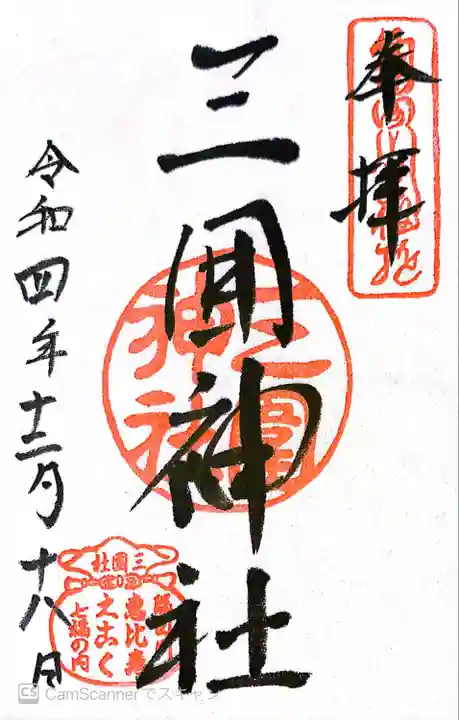 奉拝
三囲神社
令和四年十二月十八日
三圍社
恵比寿
大こく
七福の内
CS CamScannerでスキャン